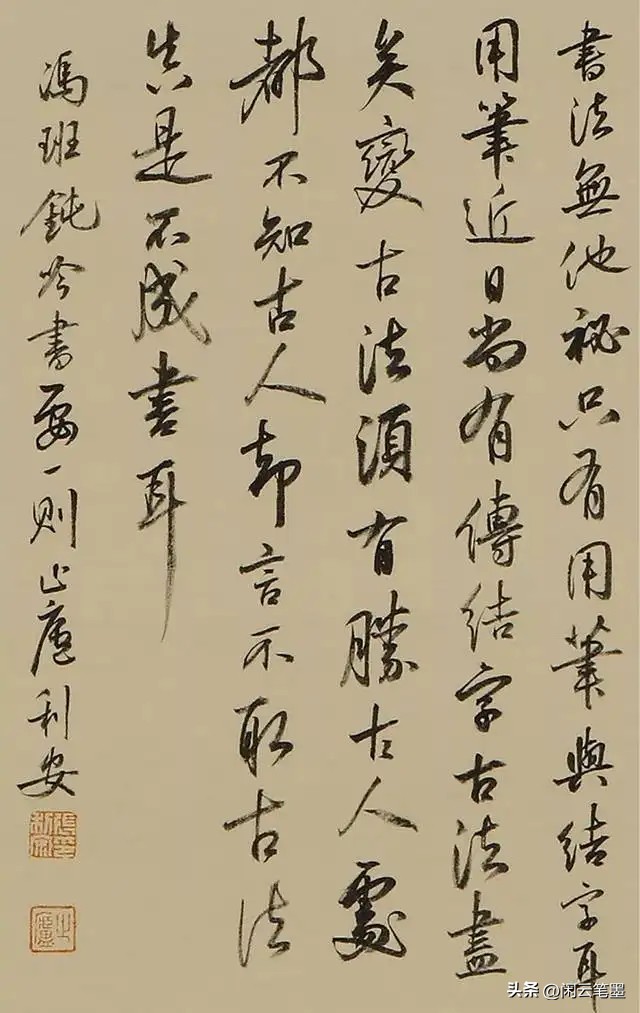 書法無他祕只有用筆與結字耳
用筆近日尚有傳結字古法盡
矣變古法須有勝古人處
都不知古人却言不取古法
真是不成書耳
馮班鈍吟書要一則止廬利安
头条 @闲云笔墨